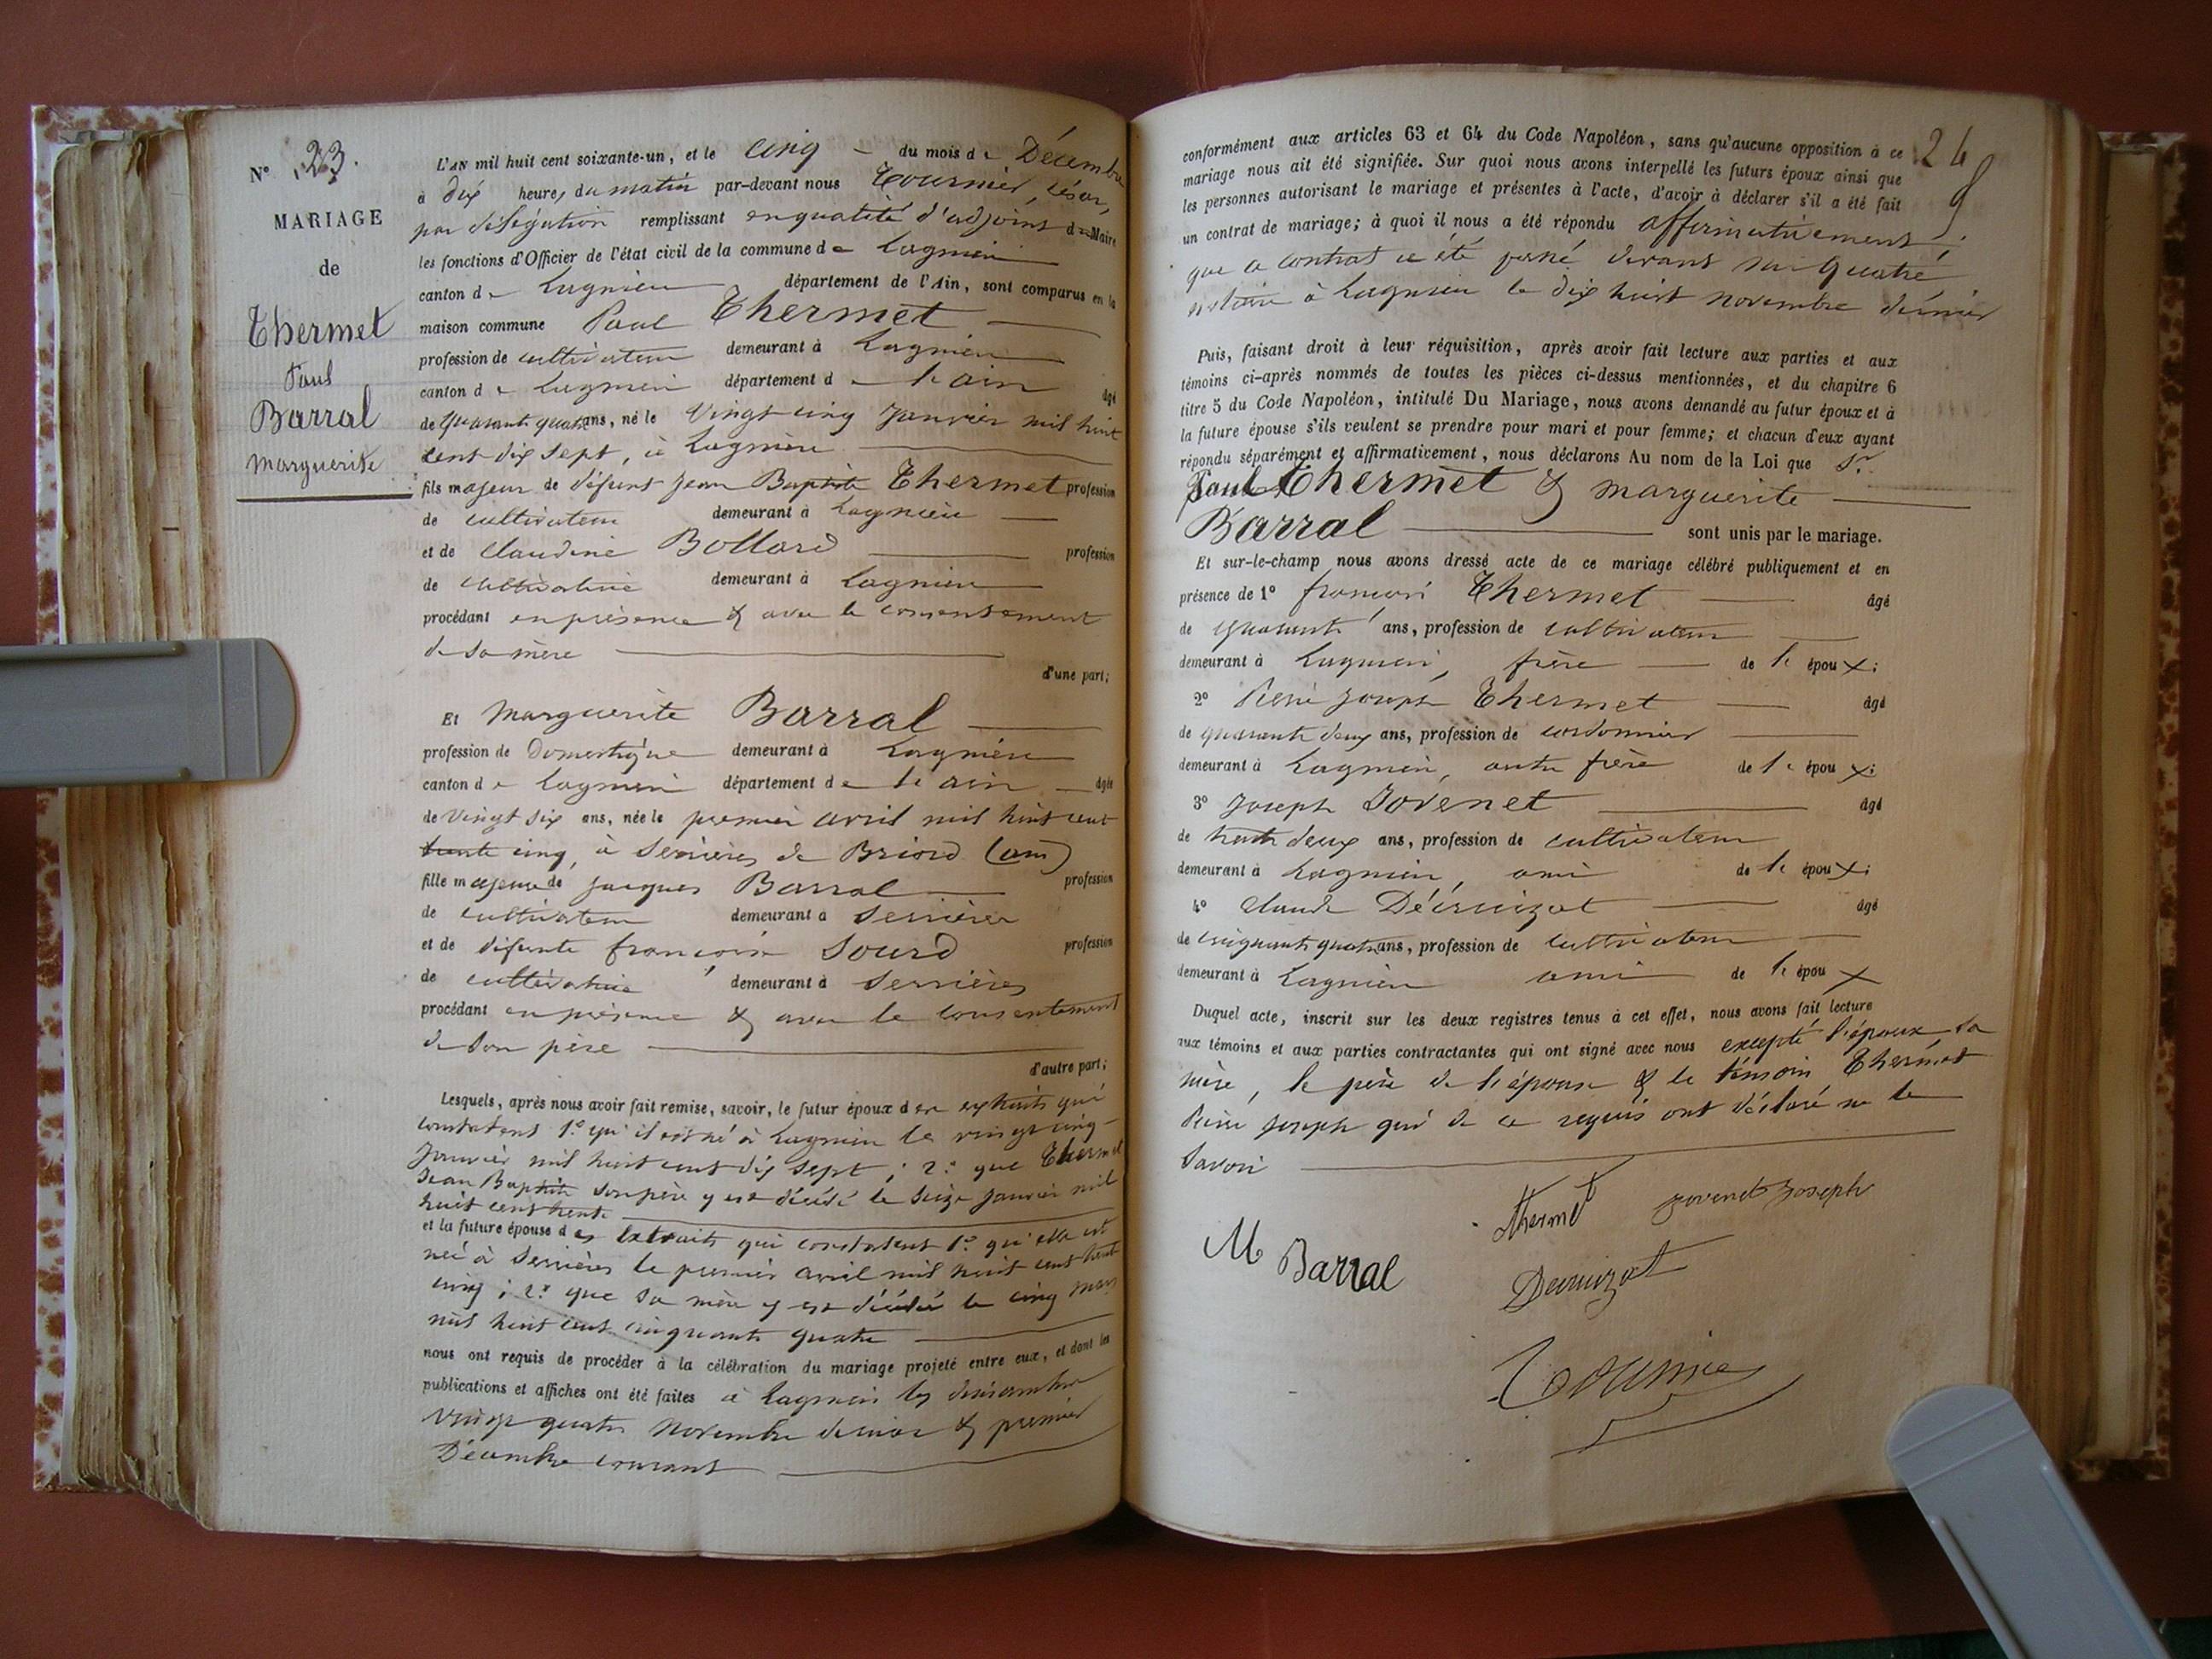 N° 23.
MARIAGE
de
Thermet
Paul
Barral
Marguerite
L'AN mil huit cent soixante-un, et le cinq du mois de Décembre
à dix heures du matin par-devant nous Tournier, César,
par délégation remplissant en qualité d'adjoint de Maire
les fonctions d'Officier de l'état civil de la commune de Lagnieu
canton de Lagnieu département de l'Ain, sont comparus en la
maison commune Paul Thermet
profession de cultivateur demeurant à Lagnieu
canton de Lagnieu département de l'ain âgé
de quarante quatre ans, né le vingt cinq Janvier mil huit
cent dix sept, à Lagnieu
fils majeur de défunt Jean Baptiste Thermet profession
de cultivateur demeurant à Lagnieu
et de Claudine Bollard profession
de cultivatrice demeurant à Lagnieu
procédant en présence & avec le consentement
de sa mère
d'une part;
Et Marguerite Barral
profession de Domestique demeurant à Lagnieu
canton de Lagnieu département de l'ain âgée
de vingt six ans, née le premier avril mil huit cent
trente cinq, à Serrières de Briord (ain)
fille majeure de Jacques Barral profession
de cultivateur demeurant à Serrières
et de défunte françoise Sourd profession
de cultivatrice demeurant à Serrières
procédant en présence & avec le consentement
de son père
d'autre part;
Lesquels, après nous avoir fait remise, savoir, le futur époux des extraits qui
constatent 1.° qu'il est né à Lagnieu le vingt cinq
Janvier mil huit cent dix sept; 2.° que Thermet
Jean Baptiste son père y est décédé le seize Janvier mil
huit cent trente
et la future épouse des extraits qui constatent 1.° qu'elle est
née à Serrières le premier avril mil huit cent trente
cinq; 2.° que sa mère y est décédée le cinq mars
mil huit cent cinquante quatre
nous ont requis de procéder à la célébration du mariage projeté entre eux, et dont les
publications et affiches ont été faites à Lagnieu les dimanches
vingt quatre Novembre dernier & premier
Décembre courant
24
conformément aux articles 63 et 64 du Code Napoléon, sans qu'aucune opposition à ce
mariage nous ait été signifiée. Sur quoi nous avons interpellé les futurs époux ainsi que
les personnes autorisant le mariage et présentes à l'acte, d'avoir à déclarer s'il a été fait
un contrat de mariage; à quoi il nous a été répondu affirmativement
que ce contrat a été passé devant
notaire à Lagnieu le dix huit novembre dernier
Puis, faisant droit à leur réquisition, après avoir fait lecture aux parties et aux
témoins ci-après nommés de toutes les pièces ci-dessus mentionnées, et du chapitre 6
titre 5 du Code Napoléon, intitulé Du Mariage, nous avons demandé au futur époux et à
la future épouse s'ils veulent se prendre pour mari et pour femme; et chacun d'eux ayant
répondu séparément et affirmativement, nous déclarons Au nom de la Loi que Sr
Paul Thermet & Marguerite
Barral sont unis par le mariage.
Et sur-le-champ nous avons dressé acte de ce mariage célébré publiquement et en
présence de 1° françois Thermet âgé
de quarante ans, profession de cultivateur
demeurant à Lagnieu, frère de l'époux;
2° Pierre Joseph Thermet âgé
de quarante deux ans, profession de cordonnier
demeurant à Lagnieu, autre frère de l'époux;
3° Joseph Jovenet âgé
de trente deux ans, profession de cultivateur
demeurant à Lagnieu, ami de l'époux;
4° Claude Décruizat âgé
de cinquante quatre ans, profession de cultivateur
demeurant à Lagnieu ami de l'époux
Duquel acte, inscrit sur les deux registres tenus à cet effet, nous avons fait lecture
aux témoins et aux parties contractantes qui ont signé avec nous excepté l'époux sa
mère, le père de l'épouse & le témoin Thermet
Pierre Joseph qui de ce requis ont déclaré ne le
savoir
Thermet Jovenet Joseph
M Barral
Decruizat
Tournier